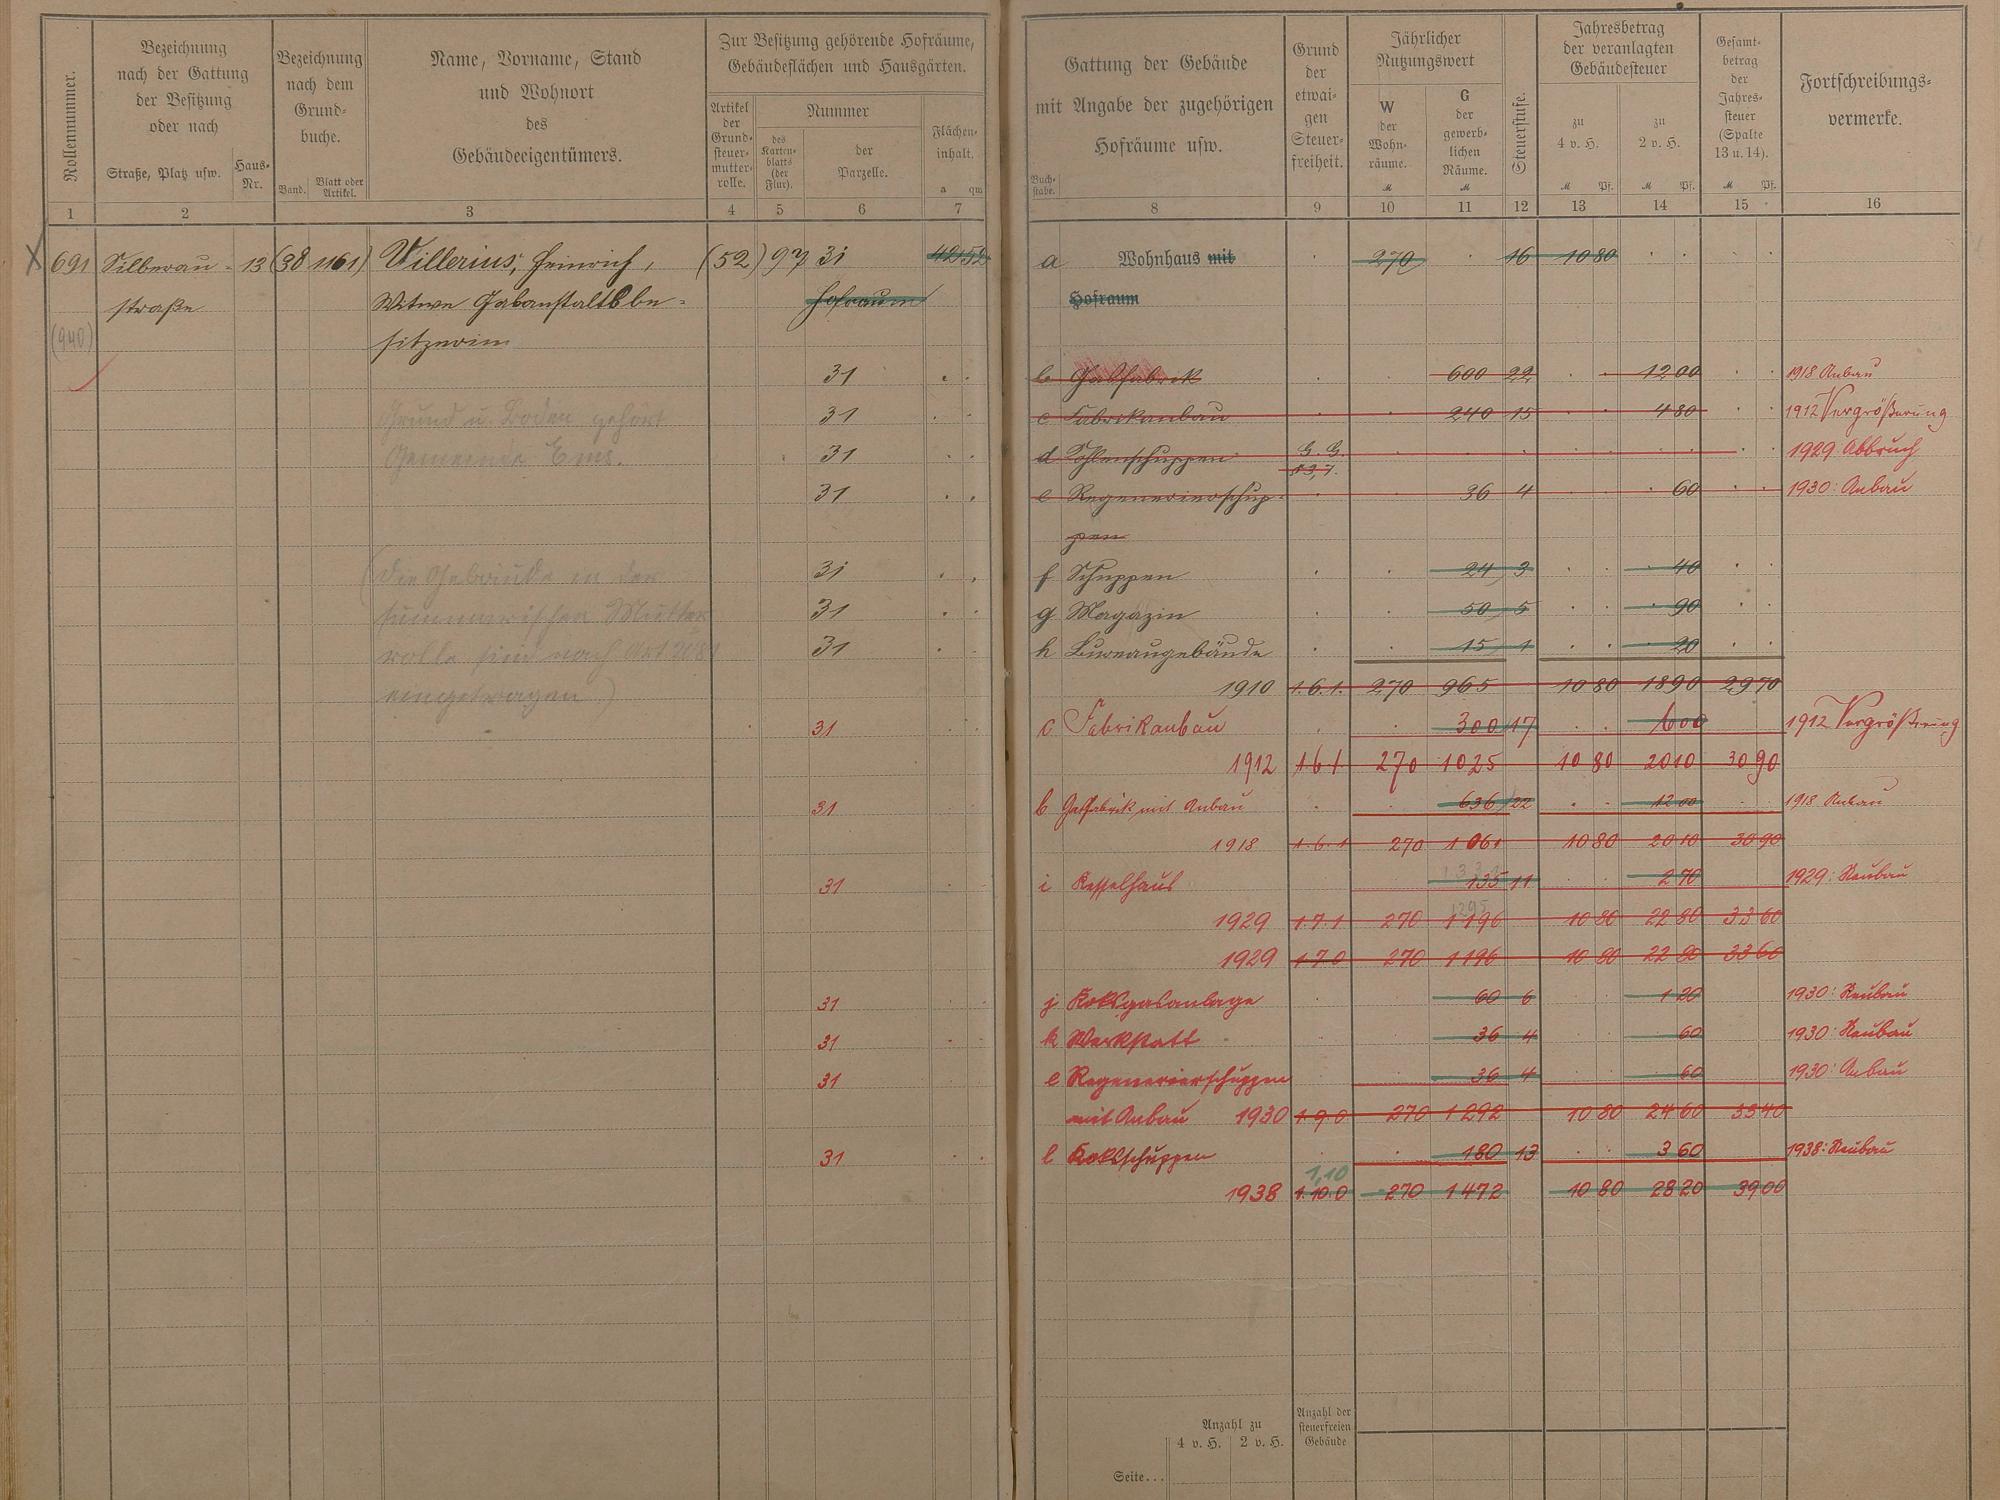 Rollennummer.
Bezeichnung
nach der Gattung
der Besitzung
oder nach
Straße, Platz usw.
Haus-
Nr.
Bezeichnung
nach dem
Grund-
buche.
Band.
Blatt oder
Artikel.
Name, Vorname, Stand
und Wohnort
des
Gebäudeeigentümers.
Zur Besitzung gehörende Hofräume,
Gebäudeflächen und Hausgärten.
Artikel
der
Grund-
steuer-
mutter-
rolle.
Nummer
des
Karten-
blatts
(der
Flur).
der
Parzelle.
Flächen-
inhalt.
a qm
1 2 3 4 5 6 7
691 Silberau- 13 (38 1161) Villerius, Heinrich, (52) 97 31 42 52
straße Witwe Gasanstaltsbe- Hofraum
(940) sitzerin
31
Grund u. Boden gehört 31
Gemeinde Ems. 31
31
(die Gebäude in der 31
summarischen Mutter 31
rolle sind nach Art 31
eingetragen)
31
31
31
31
31
31
31
Gattung der Gebäude
mit Angabe der zugehörigen
Hofräume usw.
Buch-
stabe.
Grund
der
etwai-
gen
Steuer-
freiheit.
Jährlicher
Nutzungswert
W
der
Wohn-
räume.
M
G
der
gewerb-
lichen
Räume.
M
Steuerstufe.
Jahresbetrag
der veranlagten
Gebäudesteuer
zu
4 v. H.
M Pf.
zu
2 v. H.
M Pf.
Gesamt-
betrag
der
Jahres-
steuer
(Spalte
13 u. 14).
M Pf.
Fortschreibungs-
vermerke.
8 9 10 11 12 13 14 15 16
a Wohnhaus mit 270 16 10 80
Hofraum
b Gasfabrik 600 22 12 00 1918 Anbau
c Fabrikanbau 240 15 4 80 1912 Vergrößerung
d Kohlenschuppen G. G. 1929 Abbruch
e Regenerierschup- 36 4 60 1930: Anbau
pen
f Schuppen 24 3 40
g Magazin 50 5 90
h Bureaugebäude 15 1 20
1910 1.6.1. 270 965 10 80 18 90 29 70
c Fabrikanbau 300 17 6 00 1912 Vergrößerung
1912 1 6 1 270 1025 10 80 20 10 30 90
b Gasfabrik mit Anbau 636 22 12 00 1918 Anbau
1918 1.6.1 270 1061 10 80 20 10 30 90
i Kesselhaus 135 11 2 70 1929: Neubau
1295
1929 1.7.1 270 1196 10 80 22 80 33 60
1929 1.7.0 270 1196 10 80 22 80 33 60
j Koksgasanlage 60 6 1 20 1930: Neubau
k Werkstatt 36 4 60 1930: Neubau
e Regenerierschuppen 36 4 60 1930: Anbau
mit Anbau 1930 1.9.0 270 1292 10 80 24 60 35 40
l Koksschuppen 180 13 3 60 1938: Neubau
1,10
1938 1.10.0 270 1472 10 80 28 20 39 00
Anzahl zu
4 v. H. 2 v. H.
Anzahl der
steuerfreien
Gebäude
Seite...